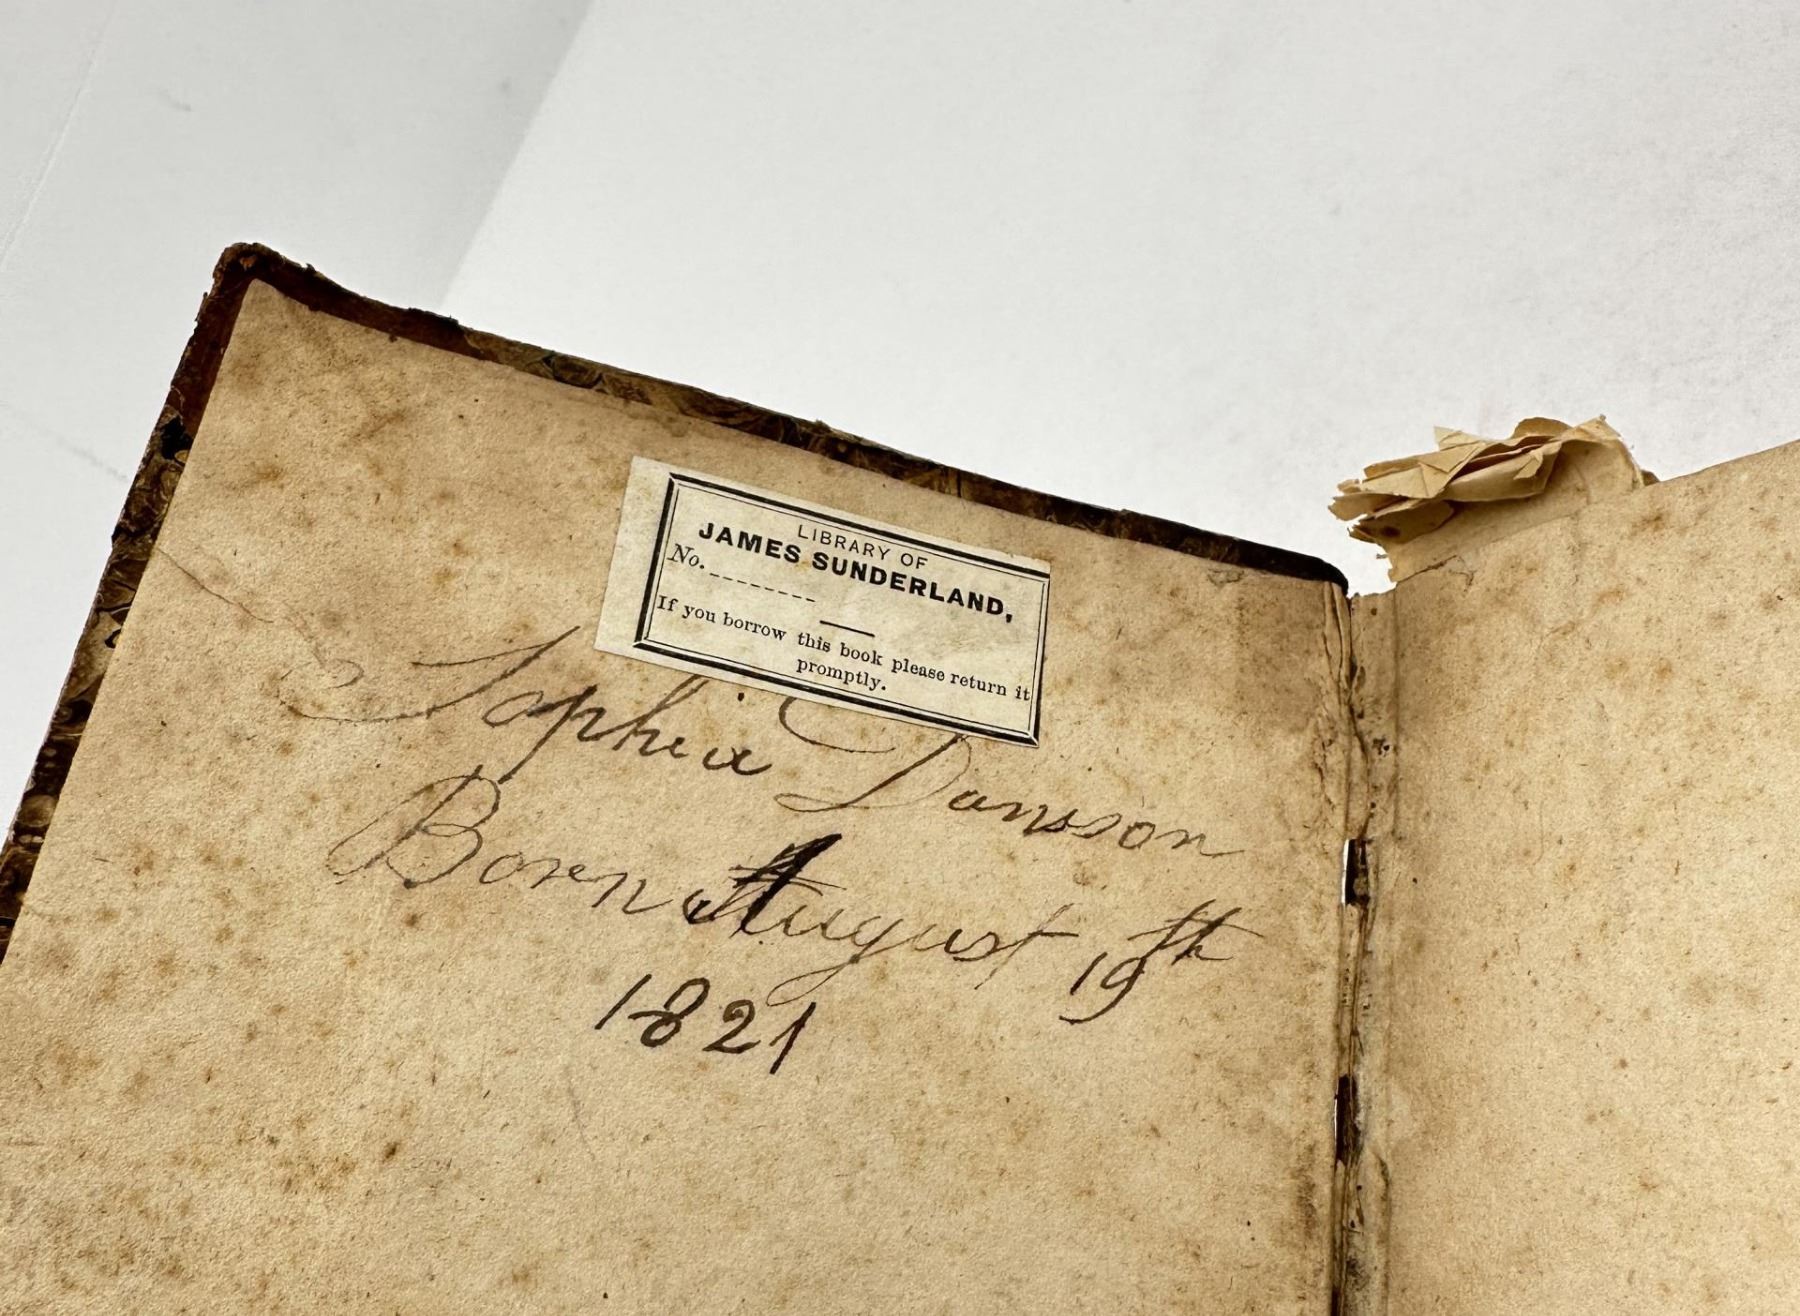 LIBRARY OF
JAMES SUNDERLAND,
No.
If you borrow this book please return it
promptly.
Sophia Damson
Born August 19th
1821